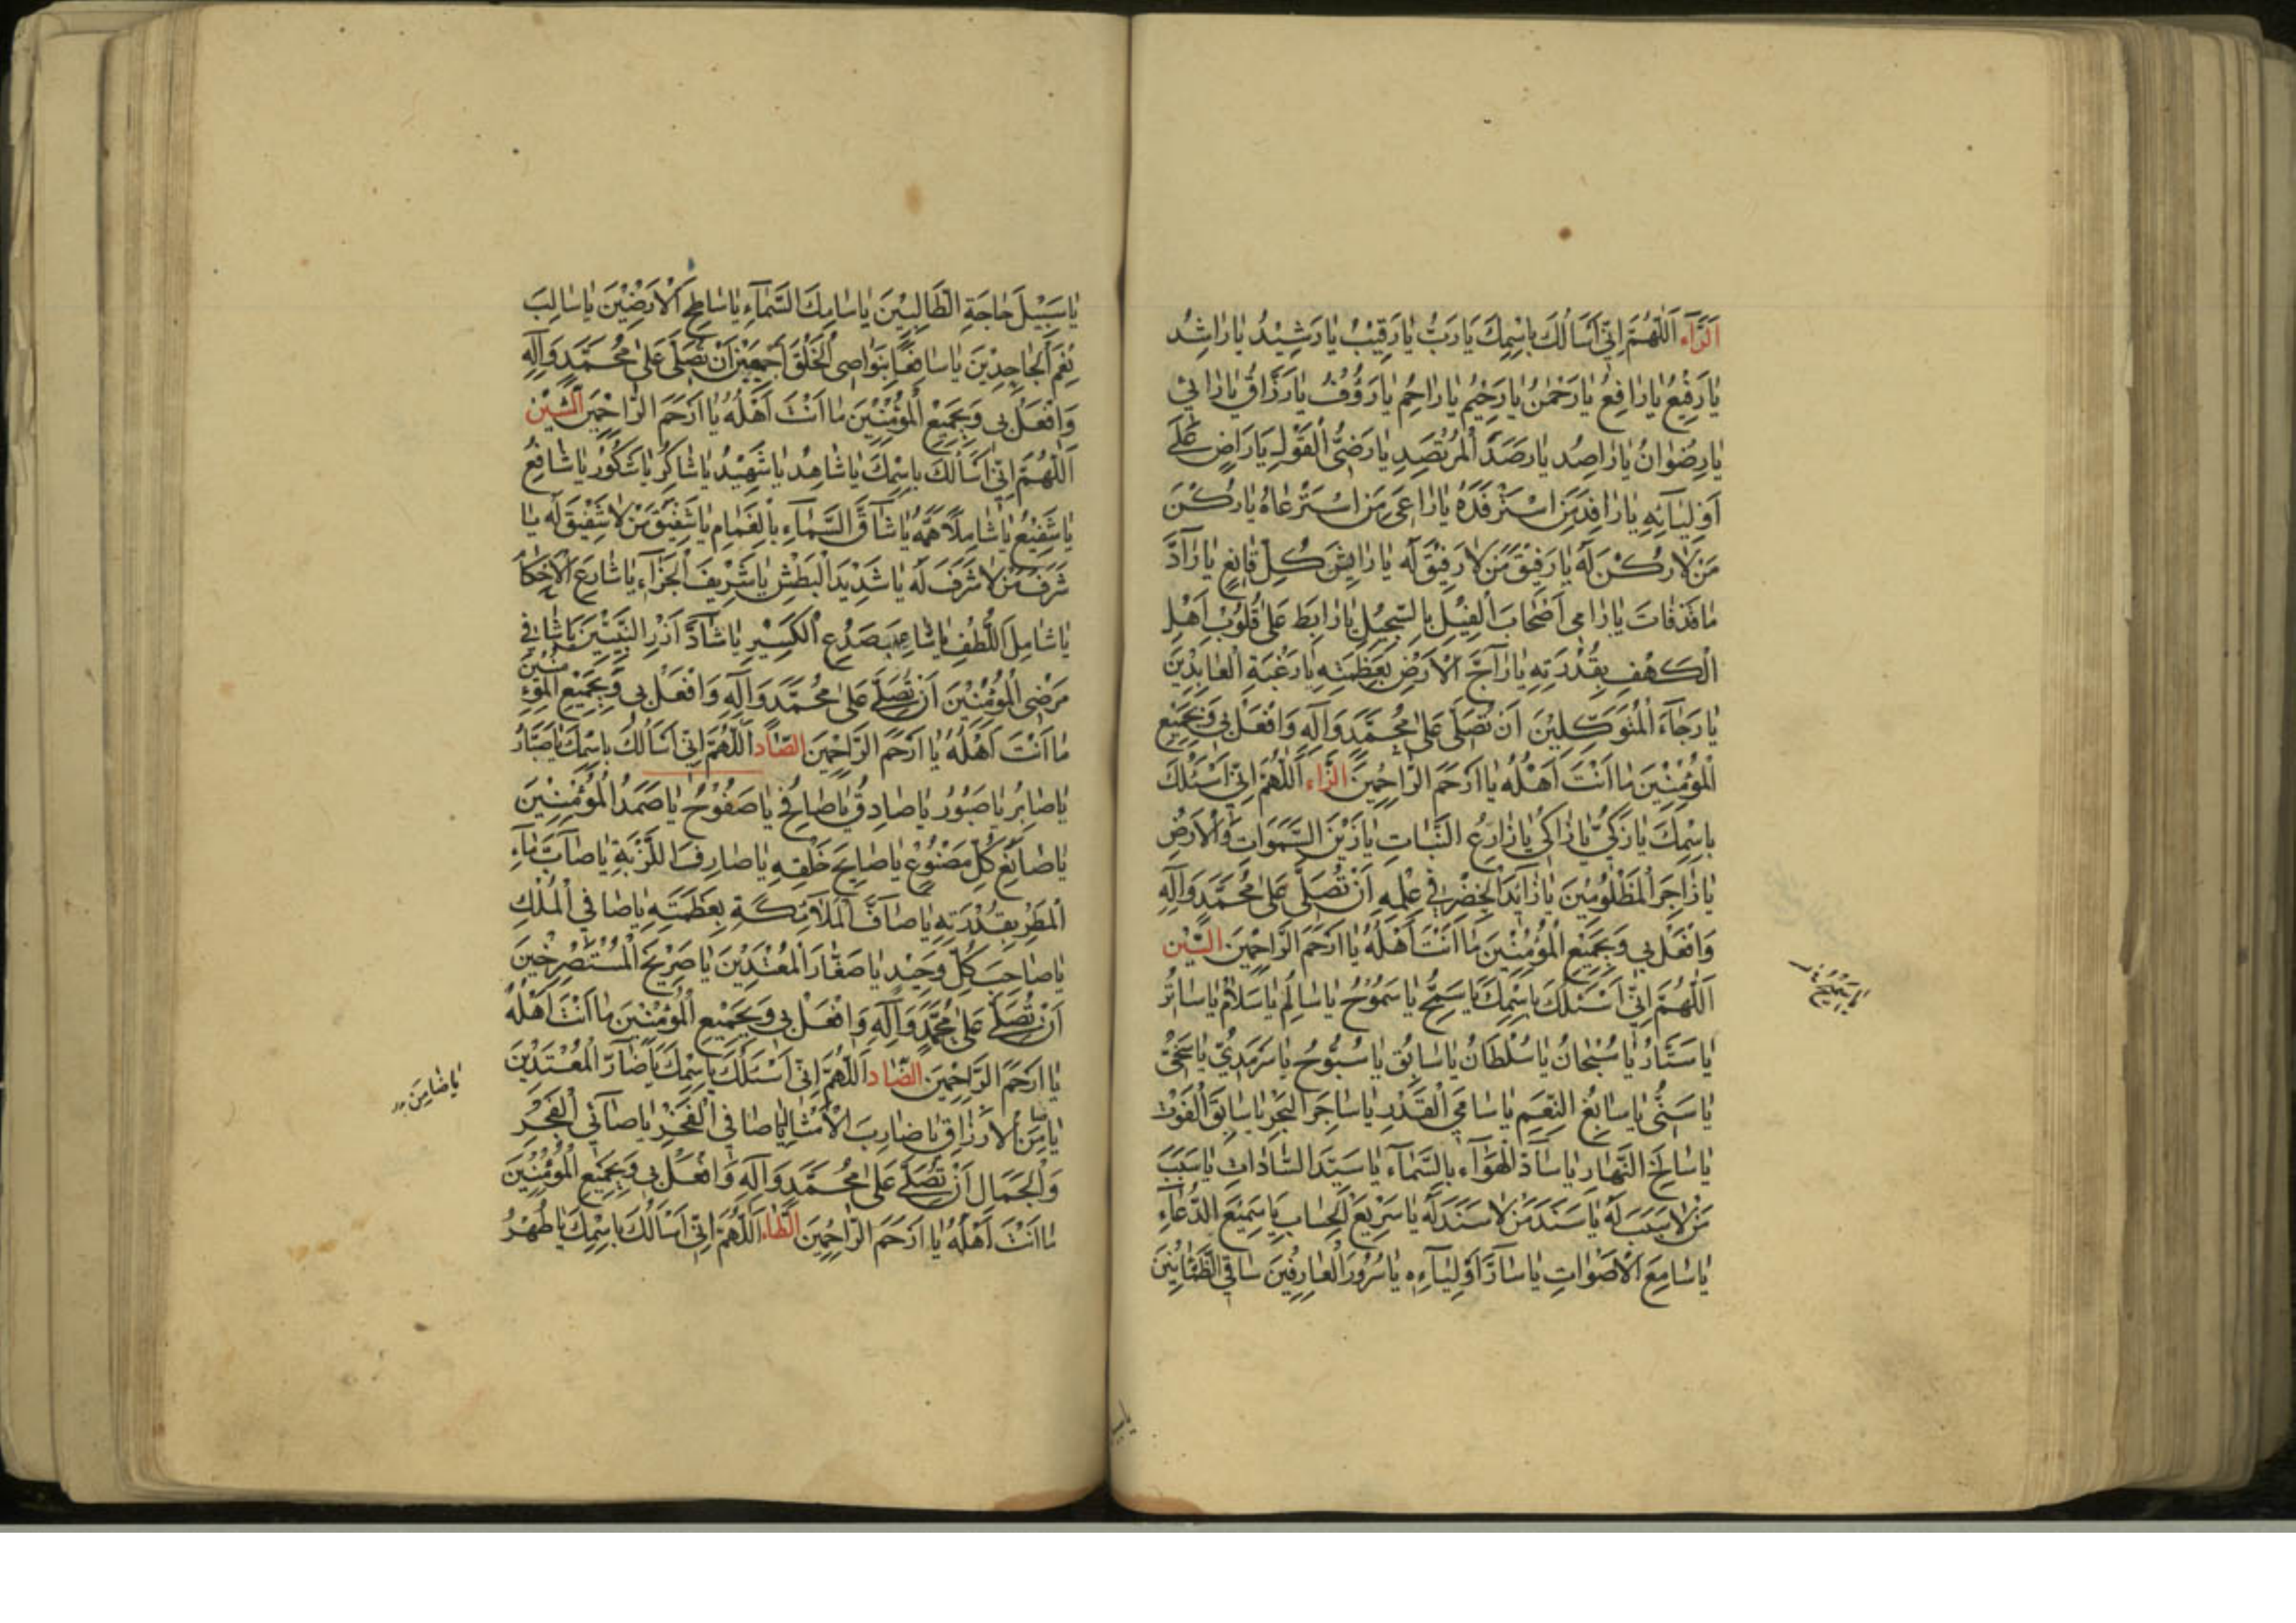 اَلرَّآء اَللّٰهُمَّ اِنّي اَسَاَلُكَ بِاسْمِكَ يَا رَبُّ يَا رَقِيْبُ يَا رَشِيْدُ يَا رَاشِدُ
يَا رَفِيْعُ يَا رَافِعُ يَا رَحْمٰنُ يَا رَحِيْمُ يَا رَاحِمُ يَا رَؤُفُ يَا رَزَّاقُ يَا رَائي
يَا رِضْوَانُ يَا رَاصِدُ يَا رَصَدَ الْمُرْتَصِدِ يَا رَضِىُّ الْقَوْلِ يَا رَاضٍ عَلٰے
اَوْلِيَائِهِ يَا رَافِدَ مَنِ اسْتَرْفَدَهُ يَا رَاعىَ مَنِ اسْتَرْعَاهُ يَا رُكْنَ
مَنْ لَا رُكْنَ لَهُ يَا رَفِيْقَ مَنْ لَا رَفِيْقَ لَهُ يَا رَايِشَ كُلِّ قَانِعٍ يَا رَآدَّ
مَا قَدْ فَاتَ يَا رَامى اَصْحَابَ الْفِيْلِ بِالسِّجِيْلِ يَا رَابِطَ عَلىٰ قُلُوْبِ اَهْلِ
الْكَهْفِ بِقُدْرَتِهِ يَا رَآجَّ الْاَرْضِ بِعَظَمَتِهِ يَا رَغْبَةَ الْعَابِدِيْنَ
يَا رَجَآءَ الْمُتَوَكِّلِيْنَ اَنْ تُصَلّىَ عَلىٰ مُحَمَّدٍ وَآلِهِ وَافْعَلْ بى وَبِجَمِيْعِ
الْمُؤْمِنِيْنَ مَا اَنْتَ اَهْلُهُ يَا اَرْحَمَ الرَّاحِمِينَ الزَّاء اَللّٰهُمَّ اِنّي اَسْئَلُكَ
بِاسْمِكَ يَا زَكِىُّ يَا زَاكى يَا زَارِعَ النَّبَاتِ يَا زَيْنَ السَّمٰوَاتِ وَالْاَرْضِ
يَا زَاجِرَ الْمَظْلُومِيْنَ يَا زَآئِدَ الْخِضْرِ فِي عِلْمِهِ اَنْ تُصَلّىَ عَلىٰ مُحَمَّدٍ وَآلِهِ
وَافْعَلْ بي وَبِجَمِيْعِ الْمُؤْمِنِيْنَ مَا اَنْتَ اَهْلُهُ يَا اَرْحَمَ الرَّاحِمِيْنَ السّيْن
اَللّٰهُمَّ اِنّي اَسْئَلُكَ بِاسْمِكَ يَا سَمِحُ يَا سَمُوْحُ يَا سَالِمُ يَا سَلَامُ يَا سَاتِرُ
يَا سَتَّارُ يَا سُبْحَانُ يَا سُلْطَانُ يَا سَابِقُ يَا سُبُّوحُ يَا سَرْمَدِىُّ يَا سَخِىُّ
يَا سَنِىُّ يَا سَابِغَ النِّعَمِ يَا سَامِىَ الْقَدْرِ يَا سَاجِرَ الْبَحْرِ يَا سَابِقَ الْفَوْتِ
يَا سَالِخَ النَّهَارِ يَا سَآدَّ الْهَوَاءِ بِالسَّمَاءِ يَا سَيِّدَ السَّادَاتِ يَا سَبَبَ
مَنْ لَا سَبَبَ لَهُ يَا سَنَدَ مَنْ لَا سَنَدَ لَهُ يَا سَرِيْعَ الْحِسَابِ يَا سَمِيْعَ الدُّعَآءِ
يَا سَامِعَ الْاَصْوَاتِ يَا سَآرَّ اَوْلِيَآءِهِ يَا سُرُوْرَ الْعَارِفِيْنَ سَاقِى الظَّمْانِيْنَ
يَا سَبِيْلَ حَاجَةِ الطَّالِبِيْنَ يَا سَامِكَ السَّمَآءِ يَا سَاطِحَ الْاَرَضِيْنَ يَا سَالِبَ
نِعَمِ الْجَاحِدِيْنَ يَا سَافِعًا بِنَوَاصِى الْخَلْقِ اَجْمَعِيْنَ اَنْ تُصَلّىَ عَلىٰ مُحَمَّدٍ وَآلِهِ
وَافْعَلْ بى وَبِجَمِيْعِ الْمُؤْمِنِيْنَ مَا اَنْتَ اَهْلُهُ يَا اَرْحَمَ الرَّاحِمِيْنَ الشّيْن
اَللّٰهُمَّ اِنّي اَسْاَلُكَ بِاسْمِكَ يَا شَاهِدُ يَا شَهِيْدُ يَا شَاكِرُ يَا شَكُوْرُ يَا شَافِعُ
يَا شَفِيْعُ يَا شَامِلًا هَمُّهُ يَا شَاقَّ السَّمَآءِ بِالْغَمَامِ يَا شَفِيْقَ مَنْ لَا شَفِيْقَ لَهُ يَا
شَرَفَ مَنْ لَا شَرَفَ لَهُ يَا شَدِيْدَ الْبَطْشِ يَا شَرِيْفَ الْجَزَآءِ يَا شَارِعَ الْاَحْكَامِ
يَا شَامِلَ اللُّطْفِ يَا شَاعِبَ صَدْعِ الْكَسِيْرِ يَا شَآدَّ اَزْرِ النَّبِيّيْنَ يَا شَافى
مَرْضى الْمُؤْمِنِيْنَ اَنْ تُصَلّے عَلىٰ مُحَمَّدٍ وَآلِهِ وَافْعَلْ بى وَبِجَمِيْعِ الْمُؤمِنِيْنَ
مَا اَنْتَ اَهْلُهُ يَا اَرْحَمَ الرَّاحِمِيْنَ الصَّاد اَللّٰهُمَّ اِنّى اَسْاَلُكَ بِاسْمِكَ يَا صَبَّارُ
يَا صَابِرُ يَا صَبُوْرُ يَا صَادِقُ يَا صَافِحُ يَا صَفُوْحُ يَا صَمَدَ الْمُؤْمِنِيْنَ
يَا صَانِعَ كُلِّ مَصْنُوْعٍ يَا صَالِحَ خَلْقِهِ يَا صَارِفَ اللَّزْبَةِ يَا صَآبَّ مَاءِ
الْمَطَرِ بِقُدْرَتِهِ يَا صَآفَّ الْمَلَائِكَةِ بِعَظَمَتِهِ يَا صَافى الْمُلْكِ
يَا صَاحِبَ كُلِّ وَحِيْدٍ يَا صَغَّارَ الْمُعْتَدِيْنَ يَا صَرِيْخَ الْمُسْتَصْرِخِيْنَ
اَنْ تُصَلّے عَلىٰ مُحَمَّدٍ وَآلِهِ وَافْعَلْ بى وَبِجَمِيْعِ الْمُؤْمِنِيْنَ مَا اَنْتَ اَهْلُهُ
يَا اَرْحَمَ الرَّاحِمِيْنَ الضَّاد اَللّٰهُمَّ اِنّى اَسْئَلُكَ بِاسْمِكَ يَا ضَآرَّ الْمُعْتَدِيْنَ
يَا ضَامِنَ الْاَرْزَاقِ يَا ضَارِبَ الْاَمْثَالِ يَا صَافى الْفَخْرِ يَا صَافى الْفَخْرِ
وَالْجَمَالِ اَنْ تُصَلّے عَلىٰ مُحَمَّدٍ وَآلِهِ وَافْعَلْ بى وَبِجَمِيْعِ الْمُؤْمِنِيْنَ
مَا اَنْتَ اَهْلُهُ يَا اَرْحَمَ الرَّاحِمِيْنَ الطَّاء اَللّٰهُمَّ اِنّى اَسْاَلُكَ بِاسْمِكَ يَا طُهْرُ
يا ضامن